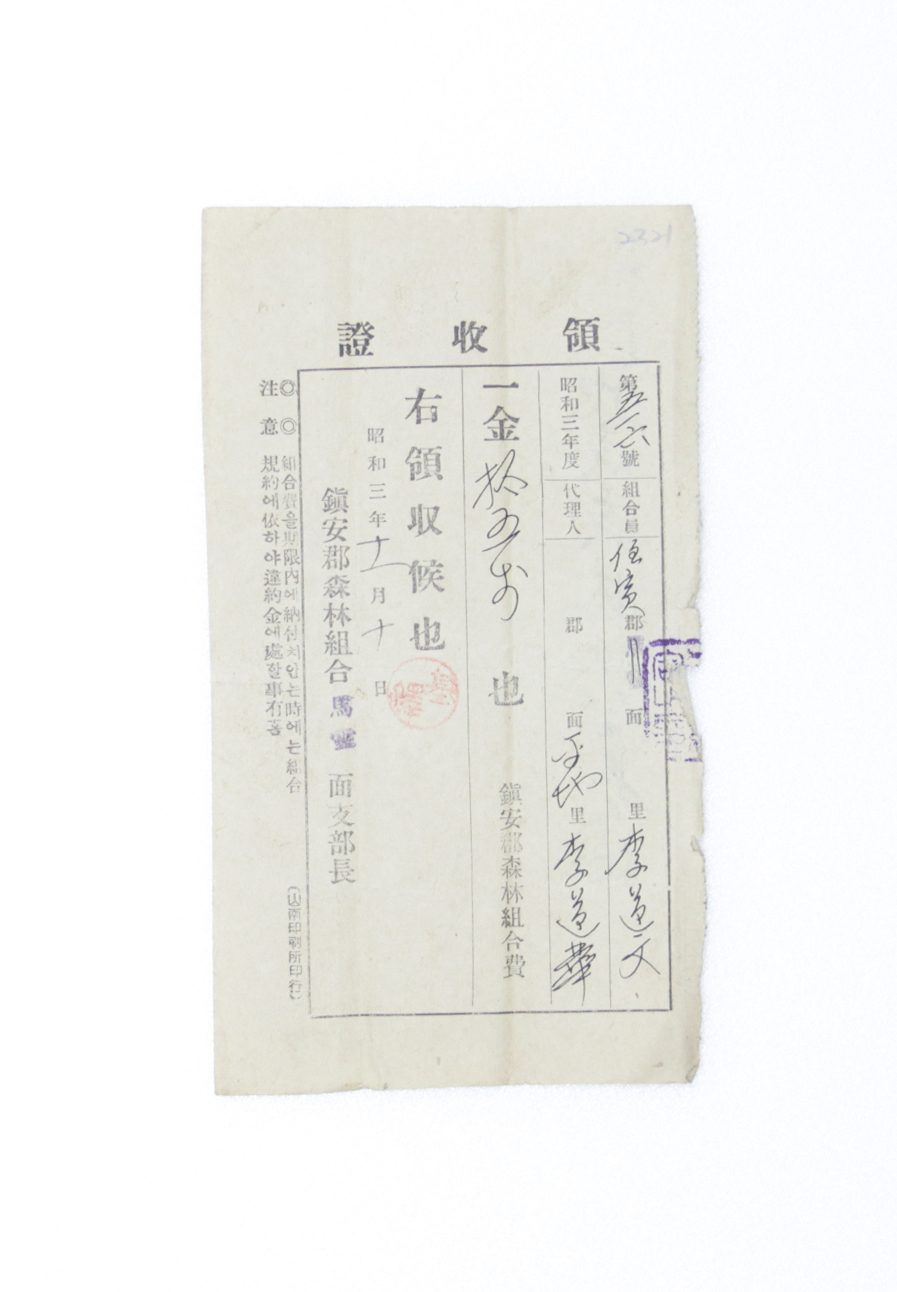 2321
領收證
第五一六號 組合員 任實郡 面 里 李道文
昭和三年度 代理人 郡 面 平地里 李道華
一金拾五戔也 鎭安郡森林組合費
右領収候也
昭和三年十一月十日
鎭安郡森林組合馬靈面支部長
◎◎組合費을期限內에納付치안는時에는組合
注意 規約에依하야違約金에處할事有홈
(山南印刷所印行)